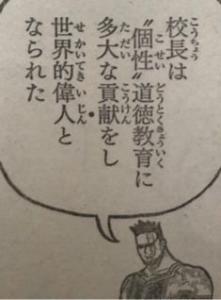 校長は
〝個性〟道徳教育に
多大な貢献をし
世界的偉人と
なられた